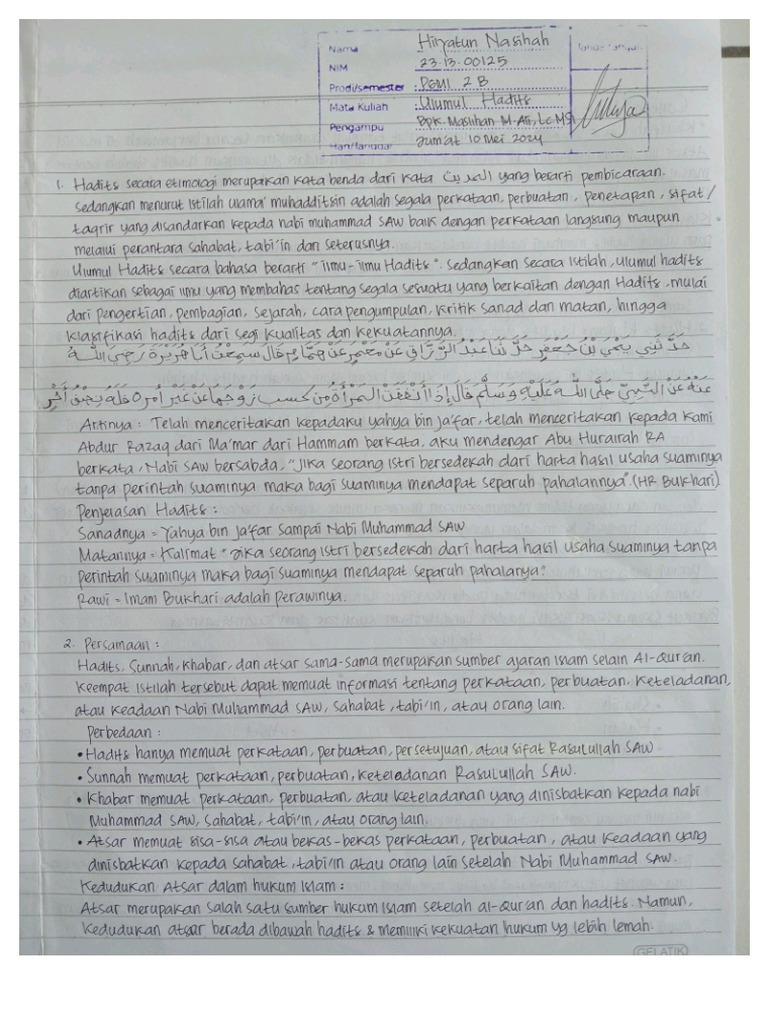 Nama : Hilyatun Nasihah
NIM : 23.13.00125
Prodi/semester : PGMI 2 B
Mata Kuliah : Ulumul Hadits
Pengampu : Bpk. Maslihan M. Ali, Lc MSI
Hari/tanggal : Jum'at 10 Mei 2024
Tanda Tangan
1. Hadits secara etimologi merupakan kata benda dari kata الحديث yang berarti pembicaraan.
Sedangkan menurut istilah ulama' muhadditsin adalah segala perkataan, perbuatan, penetapan, sifat/
taqrir yang disandarkan kepada nabi muhammad SAW baik dengan perkataan langsung maupun
melalui perantara sahabat, tabi'in dan seterusnya.
Ulumul Hadits secara bahasa berarti "ilmu-ilmu Hadits". Sedangkan secara istilah, ulumul hadits
diartikan sebagai ilmu yang membahas tentang segala sesuatu yang berkaitan dengan Hadits, mulai
dari pengertian, pembagian, sejarah, cara pengumpulan, kritik sanad dan matan, hingga
klasifikasi hadits dari segi kualitas dan kekuatannya.
حَدَّثَنِي يَحْيَى بْنُ جَعْفَرٍ حَدَّثَنَا عَبْدُ الرَّزَّاقِ عَنْ مَعْمَرٍ عَنْ هَمَّامٍ قَالَ سَمِعْتُ أَبَا هُرَيْرَةَ رَضِيَ اللَّهُ
عَنْهُ عَنِ النَّبِيِّ صَلَّى اللَّهُ عَلَيْهِ وَسَلَّمَ قَالَ إِذَا أَنْفَقَتِ الْمَرْأَةُ مِنْ كَسْبِ زَوْجِهَا عَنْ غَيْرِ أَمْرِهِ فَلَهُ نِصْفُ أَجْرِ
Artinya : Telah menceritakan kepadaku yahya bin ja'far, telah menceritakan kepada kami
Abdur Razaq dari Ma'mar dari Hammam berkata, aku mendengar Abu Hurairah RA
berkata, Nabi SAW bersabda, "Jika seorang istri bersedekah dari harta hasil usaha suaminya
tanpa perintah suaminya maka bagi suaminya mendapat separuh pahalannya". (HR Bukhari)
Penjelasan Hadits :
Sanadnya = Yahya bin ja'far sampai Nabi Muhammad SAW
Matannya = Kalimat "Jika seorang istri bersedekah dari harta hasil usaha suaminya tanpa
perintah suaminya maka bagi suaminya mendapat separuh pahalanya".
Rawi = Imam Bukhari adalah perawinya.
2. Persamaan :
Hadits, Sunnah, Khabar, dan atsar sama-sama merupakan sumber ajaran Islam selain Al-Qur'an.
Keempat istilah tersebut dapat memuat informasi tentang perkataan, perbuatan, keteladanan,
atau keadaan Nabi Muhammad SAW, sahabat, tabi'in, atau orang lain.
Perbedaan :
• Hadits hanya memuat perkataan, perbuatan, persetujuan, atau sifat Rasulullah SAW
• Sunnah memuat perkataan, perbuatan, keteladanan Rasulullah SAW.
• Khabar memuat perkataan, perbuatan, atau keteladanan yang dinisbatkan kepada nabi
Muhammad SAW, sahabat, tabi'in, atau orang lain.
• Atsar memuat sisa-sisa atau bekas-bekas perkataan, perbuatan, atau keadaan yang
dinisbatkan kepada sahabat, tabi'in atau orang lain setelah Nabi Muhammad SAW.
Kedudukan Atsar dalam hukum Islam :
Atsar merupakan salah satu sumber hukum Islam setelah al-Qur'an dan hadits. Namun,
kedudukan atsar berada dibawah hadits & memiliki kekuatan hukum yg lebih lemah.
GELATIK